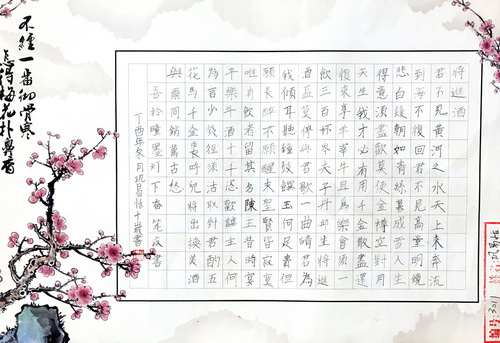 不經一番彻骨寒
怎得梅花扑鼻香
將進酒
君不見黃河之水天上来奔流
到海不復回君不見高堂明鏡
悲白髮朝如青絲暮成雪人生
得意須盡歡莫使金樽空對月
天生我才必有用千金散盡還
復来烹羊宰牛且為樂會須一
飲三百杯岑夫子丹邱生將進
酒君莫停與君歌一曲請君為
我傾耳聽鐘鼓饌玉何足貴但
願長醉不願醒聖賢皆寂寞
唯有飲者留其名陳王昔時宴
平樂斗酒十千恣歡謔主人何
為言少錢徑須沽取對君酌五
花馬千金裘呼兒將出換美酒
與爾同銷萬古愁
吾於墨灯下奋笔疾書
丁酉年冬月易恬十歲書
3011